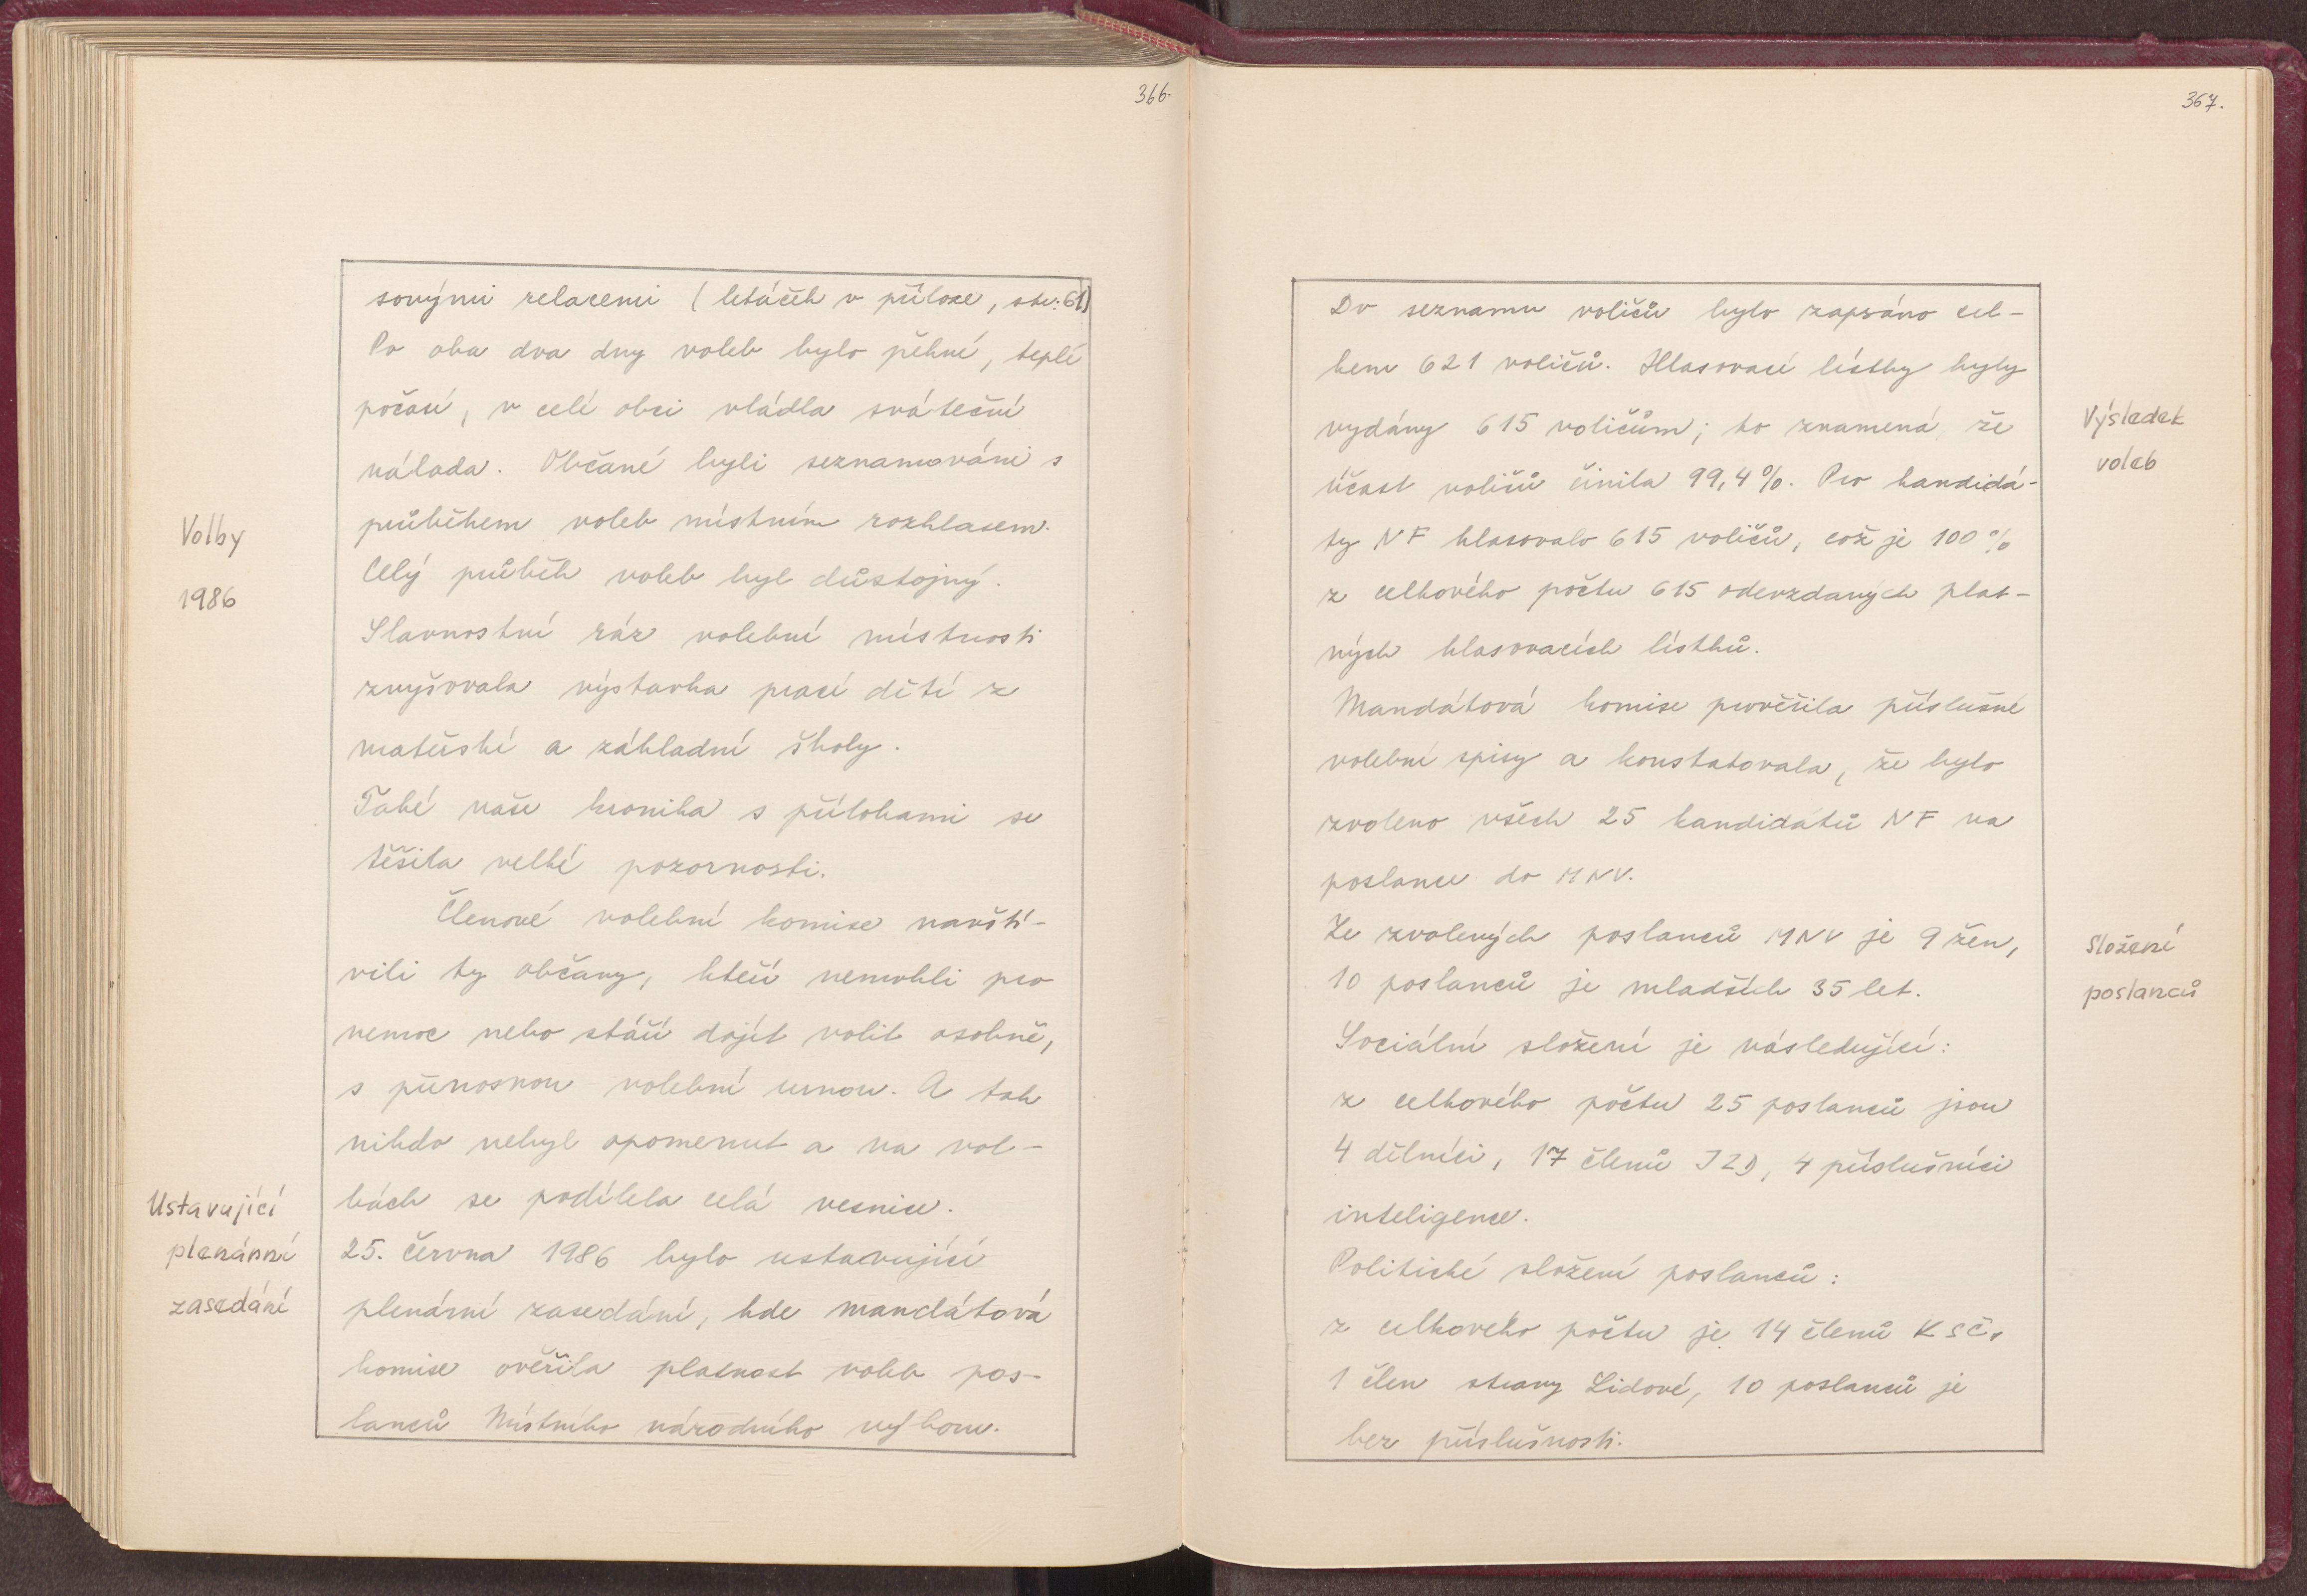 366.
sovými relacemi (letáček v příloze, str. 61)
Po oba dva dny voleb bylo pěkné, teplé
počasí, v celé obci vládla sváteční
nálada. Občané byli seznamováni s
průběhem voleb místním rozhlasem.
Celý průběh voleb byl důstojný.
Slavnostní ráz volební místnosti
zvyšovala výstavka prací dětí z
mateřské a základní školy.
Také naše kronika s přílohami se
těšila velké pozornosti.
Členové volební komise navští-
vili ty občany, kteří nemohli pro
nemoc nebo stáří dojít volit osobně,
s přenosnou volební urnou. A tak
nikdo nebyl opomenut a na vol-
bách se podílela celá vesnice.
25. června 1986 bylo ustavující
plenární zasedání, kde mandátová
komise ověřila platnost voleb pos-
lanců Místního národního výboru.
Volby
1986
Ustavující
plenární
zasedání
367.
Do seznamu voličů bylo zapsáno cel-
kem 621 voličů. Hlasovací lístky byly
vydány 615 voličům; to znamená, že
účast voličů činila 99,4%. Pro kandidá-
ty NF hlasovalo 615 voličů, což je 100%
z celkového počtu 615 odevzdaných plat-
ných hlasovacích lístků.
Mandátová komise prověřila příslušné
volební spisy a konstatovala, že bylo
zvoleno všech 25 kandidátů NF na
poslance do MNV.
Ze zvolených poslanců MNV je 9 žen,
10 poslanců je mladších 35 let.
Sociální složení je následující:
z celkového počtu 25 poslanců jsou
4 dělníci, 17 členů JZD, 4 příslušníci
inteligence.
Politické složení poslanců:
z celkového počtu je 14 členů KSČ,
1 člen strany Lidové, 10 poslanců je
bez příslušnosti.
Výsledek
voleb
Složení
poslanců